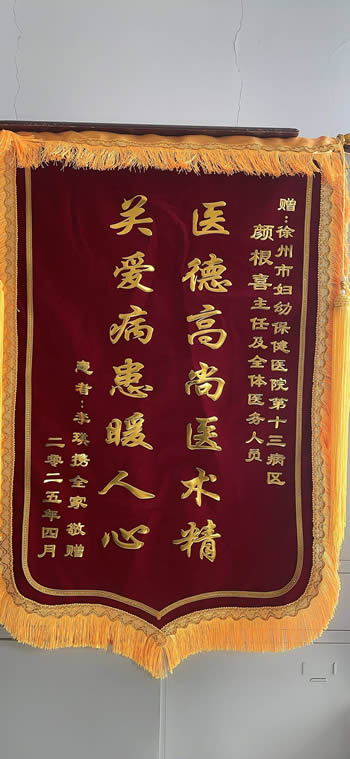 赠：徐州市妇幼保健医院第十三病区
颜根喜主任及全体医务人员
医德高尚医术精
关爱病患暖人心
患者：李瑛携全家敬赠
二零二五年四月